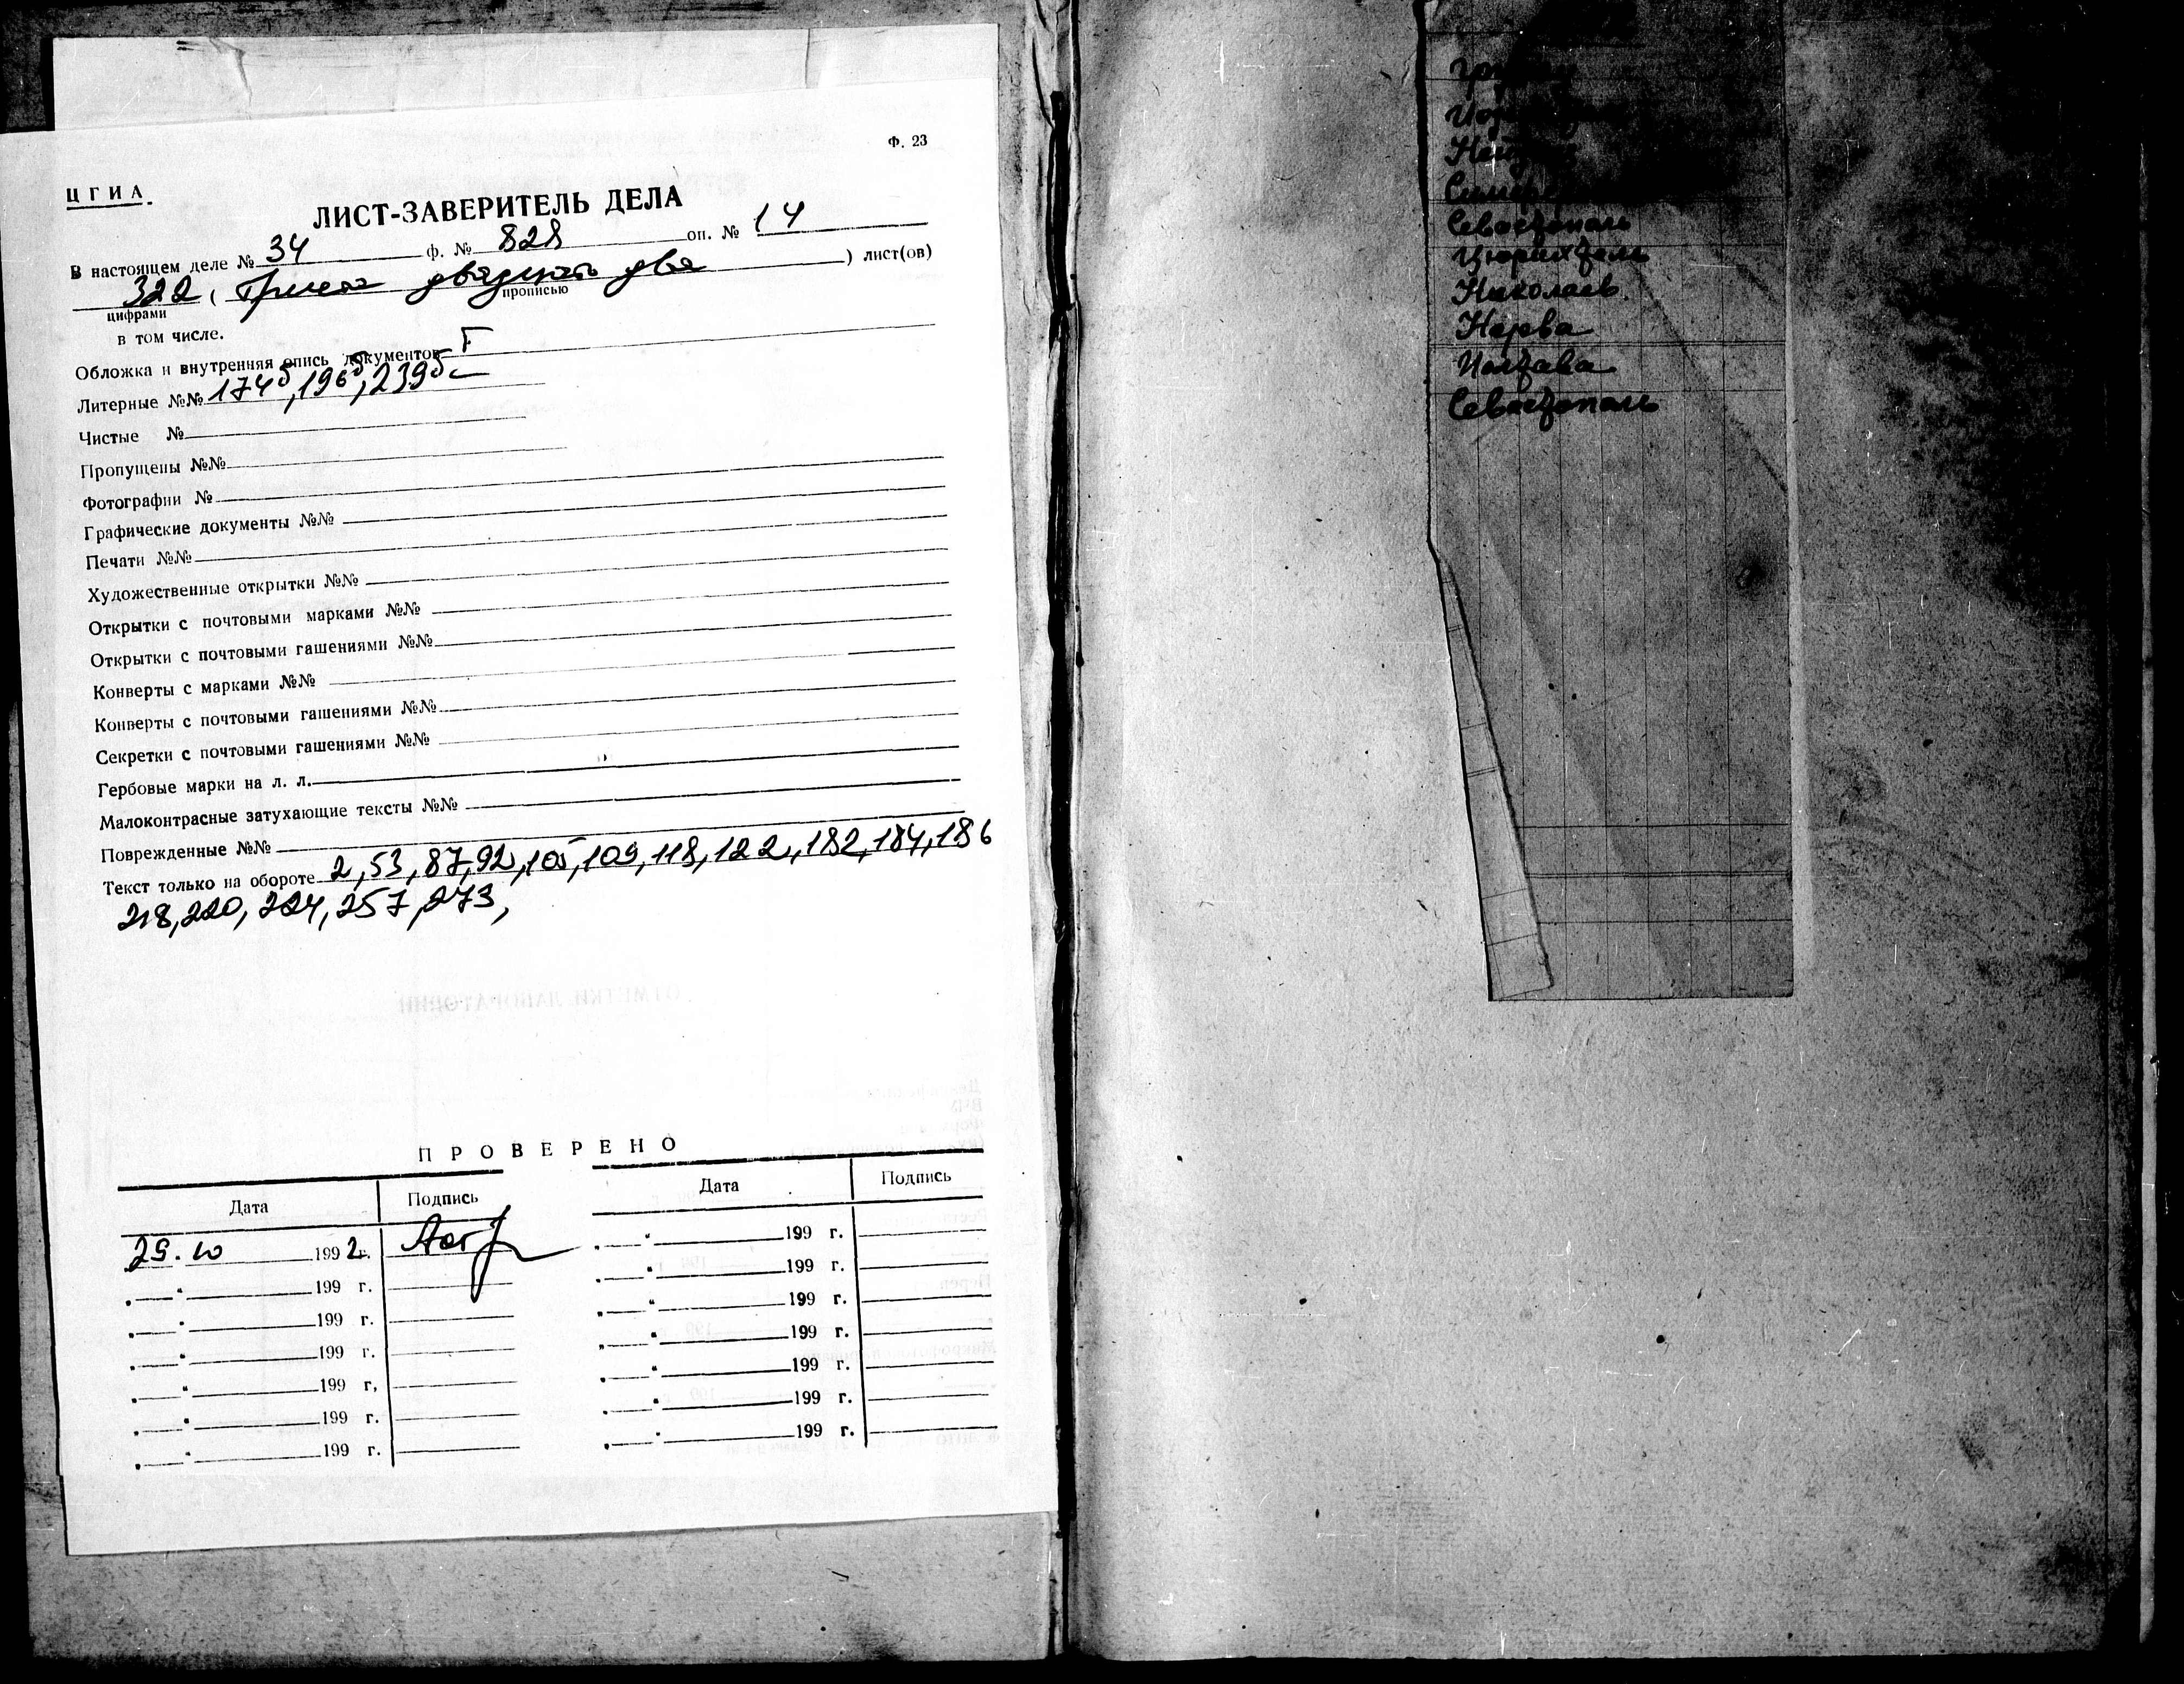 Ф. 23
ЦГИА.
ЛИСТ-ЗАВЕРИТЕЛЬ ДЕЛА
В настоящем деле № 34 ф. № 828 оп. № 14
322 ( Триста двадцать два ) лист(ов)
цифрами прописью
в том числе.
Обложка и внутренняя опись документов I
Литерные №№ 174б, 196б, 239б
Чистые №
Пропущены №№
Фотографии №
Графические документы №№
Печати №№
Художественные открытки №№
Открытки с почтовыми марками №№
Открытки с почтовыми гашениями №№
Конверты с марками №№
Конверты с почтовыми гашениями №№
Секретки с почтовыми гашениями №№
Гербовые марки на л. л.
Малоконтрасные затухающие тексты №№
Поврежденные №№
Текст только на обороте 2, 53, 87, 92, 105, 109, 118, 122, 182, 184, 186
218, 220, 224, 257, 273,
ПРОВЕРЕНО
Дата Подпись Дата Подпись
29.10 1992 г. „ “ 199 г.
„ “ 199 г. „ “ 199 г.
„ “ 199 г. „ “ 199 г.
„ “ 199 г. „ “ 199 г.
„ “ 199 г, „ “ 199 г.
„ “ 199 г. „ “ 199 г.
„ “ 199 г. „ “ 199 г.
Севастополь
Цюрихталь
Николаев.
Нарва
Полтава
Севастополь